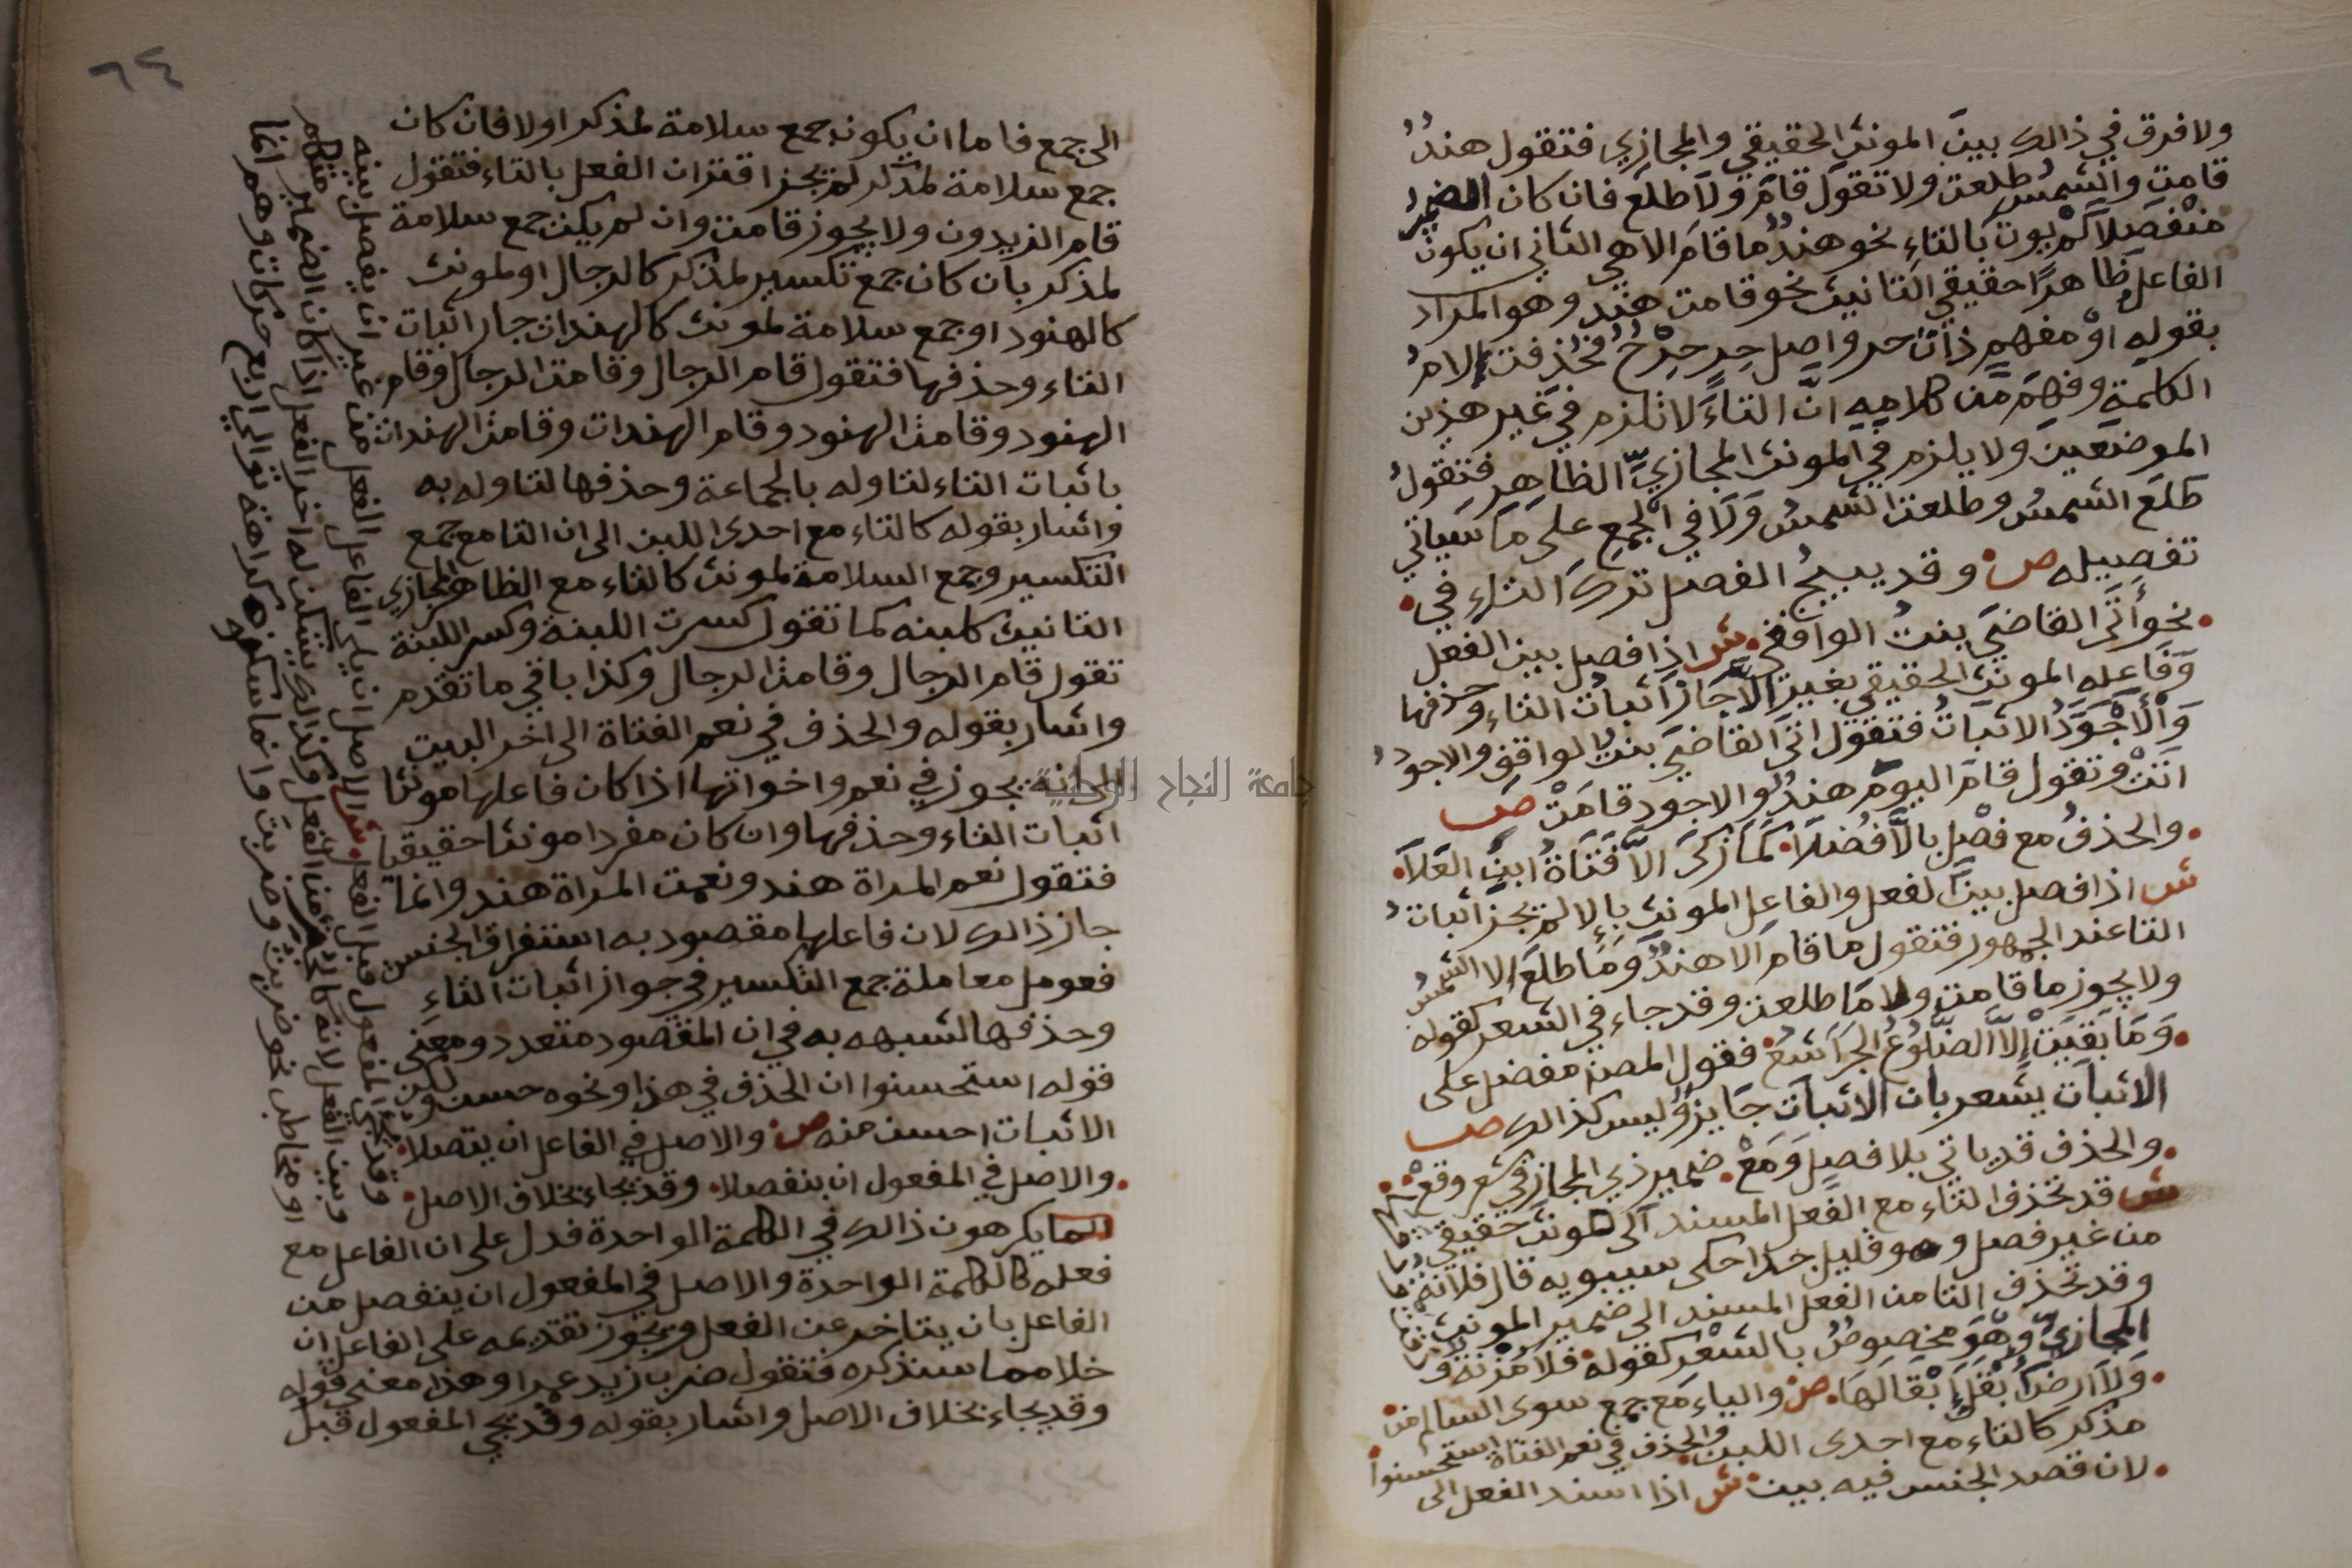 ولا فرق في ذالك بين المونث الحقيقي والمجازي فتقول هندٌ
قامت والشمس طلعت ولا تقول قام ولا طلع فان كان الضمير
منفصلا لم يوت بالتاء نحو هندٌ ما قام الا هي الثاني ان يكون
الفاعل ظاهرًا حقيقي التانيث نحو قامت هند وهو المراد
بقوله او مفهم ذات حر واصل حِرٍ حِرْحٌ فحذفت لام
الكلمة وفهم من كلامه ان التاءَ لا تلزم في غير هذين
الموضعين ولا يلزم في المونث المجازي الظاهر فتقول
طلع الشمس وطلعت الشمس ولا في الجمع على ما سياتي
تفصيله ص وقد يبيح الفصل ترك التاء في
نحو أتى القاضيَ بنتُ الواقفي ش اذا فصل بين الفعل
وفاعله المونث الحقيقي بغير الّا جاز اثبات التاء وحذفها
والاجود الاثبات فتقول اتى القاضيَ بنت الواقف والاجود
اتت وتقول قام اليوم هندٌ والاجود قامت ص
والحذف مع فصل بالّا فضلا كما زكى الّا فتاةُ ابن العلا
ش اذا فصل بين الفعل والفاعل المونث بإلا لم يجز اثبات
التا عند الجمهور فتقول ما قام الا هندٌ وما طلع الا الشمس
ولا يجوز ما قامت ولا ما طلعت وقد جاء في الشعر كقوله
وما بقيت إلّا الضلوع الجراشع فقول المصنف مفضل على
الاثبات يشعر بان الاثبات جايز وليس كذالك ص
والحذف قد ياتي بلا فصل ومع ضمير ذي المجاز في شعر وقع
ش قد تحذف التاء مع الفعل المسند الى مونث حقيقي
من غير فصل وهو قليل جدا حكى سيبويه قال فلانة
وقد تحذف التا من الفعل المسند الى ضمير المونث
المجازي وهو مخصوص بالشعر كقوله فلا مزنة
ولا ارض ابقل ابقالها ص والتاء مع جمع سوى السالم من
مذكر كالتاء مع احدى اللبن والحذف في نعم الفتاة استحسنوا
لان قصد الجنس فيه بين ش اذا اسند الفعل الى
٦٤
الى جمع فاما ان يكون جمع سلامة لمذكر اولا فان كان
جمع سلامة لمذكر لم يجز اقتران الفعل بالتاء فتقول
قام الزيدون ولا يجوز قامت وان لم يكن جمع سلامة
لمذكر بان كان جمع تكسير لمذكر كالرجال او لمونث
كالهنود او جمع سلامة لمونث كالهندات جاز اثبات
التاء وحذفها فتقول قام الرجال وقامت الرجال وقام
الهنود وقامت الهنود وقام الهندات وقامت الهندات
باثبات التاء لتاوله بالجماعة وحذفها لتاوله به
واشار بقوله كالتاء مع احدى اللبن الى ان التا مع جمع
التكسير وجمع السلامة لمونث كالتاء مع الظاهر المجازي
التانيث كلبنه كما تقول كسرت اللبنة وكسر اللبنة
تقول قام الرجال وقامت الرجال وكذا باقي ما تقدم
واشار بقوله والحذف في نعم الفتاة الى اخر البيت
الى انه يجوز في نعم واخواتها اذا كان فاعلها مونثا
اثبات التاء وحذفها وان كان مفردا مونثا حقيقيا
فتقول نعم المراة هند ونعمت المراة هند وانما
جاز ذالك لان فاعلها مقصود به استغراق الجنس
فعومل معاملة جمع التكسير في جواز اثبات التاء
وحذفها لشبهه به في ان المقصود متعدد ومعنى
قوله استحسنوا ان الحذف في هذا ونحوه حسن ولكن
الاثبات احسن منه ص والاصل في الفاعل ان يتصلا
والاصل في المفعول ان ينفصلا وقد يجاء بخلاف الاصل
انما يكرهون ذالك في الكلمة الواحدة فدل على ان الفاعل مع
فعله كالكلمة الواحدة والاصل في المفعول ان ينفصل من
الفاعل بان يتاخر عن الفعل ويجوز تقديمه على الفاعل ان
خلا مما سنذكره فتقول ضرب زيد عمرا وهذا معنى قوله
وقد يجاء بخلاف الاصل واشار بقوله وقد يجي المفعول قبل
وقد يجي المفعول قبل الفعل ش الاصل ان يلي الفاعل الفعل من غير ان يفصل بينه
وبين الفعل لانه كالجزء منه الفعل وكذالك يسكن له اخر الفعل اذا كان الضمير متكلم
او مخاطب نحو ضربت وضربت وانما سكنوه كراهة توالي اربع حركات وهم انما
جامعة النجاح الوطنية